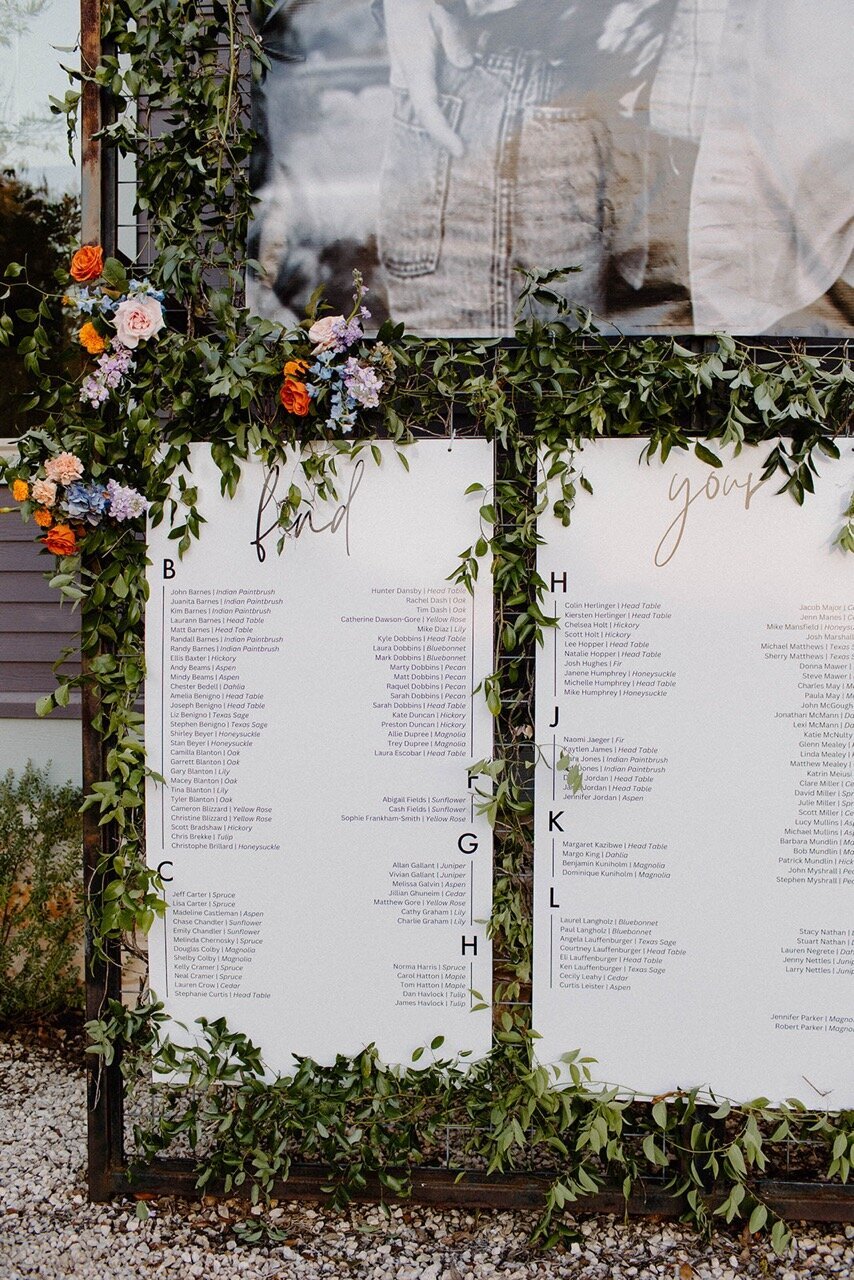 find
B
John Barnes | Indian Paintbrush
Juanita Barnes | Indian Paintbrush
Kim Barnes | Indian Paintbrush
Laurann Barnes | Head Table
Matt Barnes | Head Table
Randall Barnes | Indian Paintbrush
Randy Barnes | Indian Paintbrush
Ellis Baxter | Hickory
Andy Beams | Aspen
Mindy Beams | Aspen
Chester Bedell | Dahlia
Amelia Benigno | Head Table
Joseph Benigno | Head Table
Liz Benigno | Texas Sage
Stephen Benigno | Texas Sage
Shirley Beyer | Honeysuckle
Stan Beyer | Honeysuckle
Camilla Blanton | Oak
Garrett Blanton | Oak
Gary Blanton | Lily
Macey Blanton | Oak
Tina Blanton | Lily
Tyler Blanton | Oak
Cameron Blizzard | Yellow Rose
Christine Blizzard | Yellow Rose
Scott Bradshaw | Hickory
Chris Brekke | Tulip
Christophe Brillard | Honeysuckle
C
Jeff Carter | Spruce
Lisa Carter | Spruce
Madeline Castleman | Aspen
Chase Chandler | Sunflower
Emily Chandler | Sunflower
Melinda Chernosky | Spruce
Douglas Colby | Magnolia
Shelby Colby | Magnolia
Kelly Cramer | Spruce
Neal Cramer | Spruce
Lauren Crow | Cedar
Stephanie Curtis | Head Table
Hunter Dansby | Head Table
Rachel Dash | Oak
Tim Dash | Oak
Catherine Dawson-Gore | Yellow Rose
Mike Diaz | Lily
Kyle Dobbins | Head Table
Laura Dobbins | Bluebonnet
Mark Dobbins | Bluebonnet
Marty Dobbins | Pecan
Matt Dobbins | Pecan
Raquel Dobbins | Pecan
Sarah Dobbins | Pecan
Sarah Dobbins | Head Table
Kate Duncan | Hickory
Preston Duncan | Hickory
Allie Dupree | Magnolia
Trey Dupree | Magnolia
Laura Escobar | Head Table
Abigail Fields | Sunflower
Cash Fields | Sunflower
Sophie Frankham-Smith | Yellow Rose
G
Allan Gallant | Juniper
Vivian Gallant | Juniper
Melissa Galvin | Aspen
Jillian Ghuneim | Cedar
Matthew Gore | Yellow Rose
Cathy Graham | Lily
Charlie Graham | Lily
H
Norma Harris | Spruce
Carol Hatton | Maple
Tom Hatton | Maple
Dan Havlock | Tulip
James Havlock | Tulip
your
H
Colin Herlinger | Head Table
Kiersten Herlinger | Head Table
Chelsea Holt | Hickory
Scott Holt | Hickory
Lee Hopper | Head Table
Natalie Hopper | Head Table
Josh Hughes | Fir
Janene Humphrey | Honeysuckle
Michelle Humphrey | Head Table
Mike Humphrey | Honeysuckle
J
Naomi Jaeger | Fir
Kaytlen James | Head Table
Jones | Indian Paintbrush
Jones | Indian Paintbrush
Jordan | Head Table
Jordan | Head Table
Jennifer Jordan | Aspen
K
Margaret Kazibwe | Head Table
Margo King | Dahlia
Benjamin Kuniholm | Magnolia
Dominique Kuniholm | Magnolia
L
Laurel Langholz | Bluebonnet
Paul Langholz | Bluebonnet
Angela Lauffenburger | Texas Sage
Courtney Lauffenburger | Head Table
Eli Lauffenburger | Head Table
Ken Lauffenburger | Texas Sage
Cecily Leahy | Cedar
Curtis Leister | Aspen
Jacob Major |
Jenn Manes |
Mike Mansfield |
Josh Marshall
Michael Matthews | Texas
Sherry Matthews | Texas
Donna Mawer |
Steve Mawer |
Charles May |
Paula May |
John McGough
Jonathan McMann |
Lexi McMann |
Katie McNulty
Glenn Mealey |
Linda Mealey |
Matthew Mealey |
Katrin Meiusi
Clare Miller |
David Miller |
Julie Miller |
Scott Miller |
Lucy Mullins |
Michael Mullins |
Barbara Mundlin |
Bob Mundlin |
Patrick Mundlin |
John Myshrall |
Stephen Myshrall |
Stacy Nathan |
Stuart Nathan |
Lauren Negrete |
Jenny Nettles |
Larry Nettles |
Jennifer Parker |
Robert Parker |